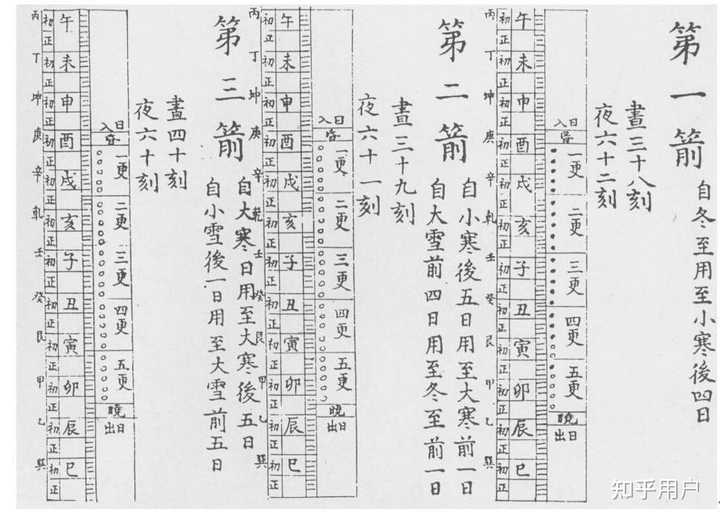 第一箭
自冬至用至小寒後四日
晝三十八刻
夜六十二刻
日入
昏
一更
二更
三更
四更
五更
曉
日出
午未申酉戌亥子丑寅卯辰巳
初正初正初正初正初正初正初正初正初正初正初正初正
丙丁坤庚辛乾壬癸艮甲乙巽
第二箭
自小寒後五日用至大寒前一日
自大雪前四日用至冬至前一日
晝三十九刻
夜六十一刻
日入
昏
一更
二更
三更
四更
五更
曉
日出
午未申酉戌亥子丑寅卯辰巳
初正初正初正初正初正初正初正初正初正初正初正初正
丙丁坤庚辛乾壬癸艮甲乙巽
第三箭
自大寒日用至大寒後五日
自小雪後一日用至大雪前五日
晝四十刻
夜六十刻
日入
昏
一更
二更
三更
四更
五更
曉
日出
午未申酉戌亥子丑寅卯辰巳
初正初正初正初正初正初正初正初正初正初正初正初正
丙丁坤庚辛乾壬癸艮甲乙巽
知乎用户